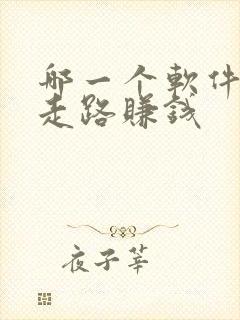 那一个軟件
走路賺錢
夜子莘